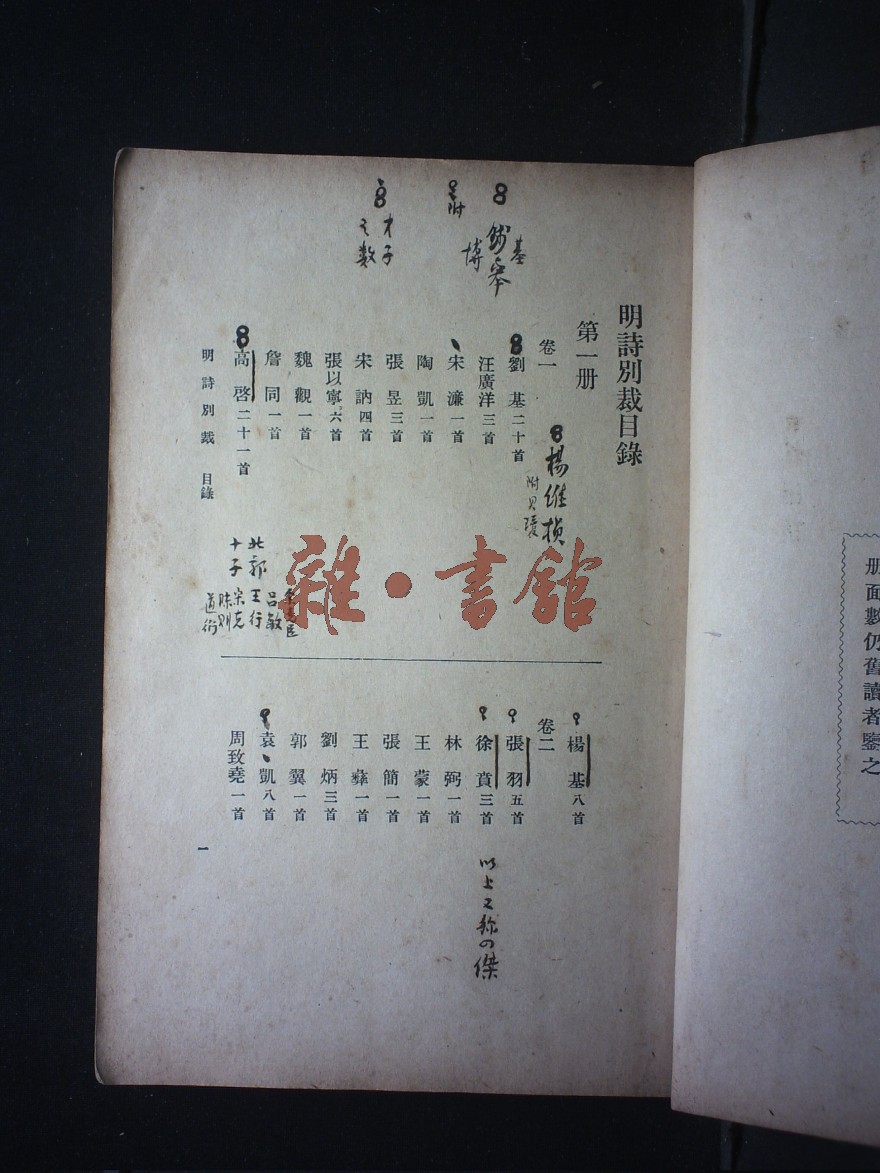 明詩別裁目錄
第一册
卷一
劉基二十首
汪廣洋三首
宋濂一首
陶凱一首
張昱三首
宋訥四首
張以寧六首
魏觀一首
詹同一首
高啓二十一首
楊基八首
卷二
張羽五首
徐賁三首
林弼一首
王蒙一首
張簡一首
王彝一首
劉炳三首
郭翼一首
袁凱八首
周致堯一首
明詩別裁 目錄
一
基
博
附
才子
之數
楊維楨
附貝瓊
呂敏
北郭 王行
十子 宋克
陳則
道衍
以上又称の傑
雜·書館
册面數仍舊讀者鑒之